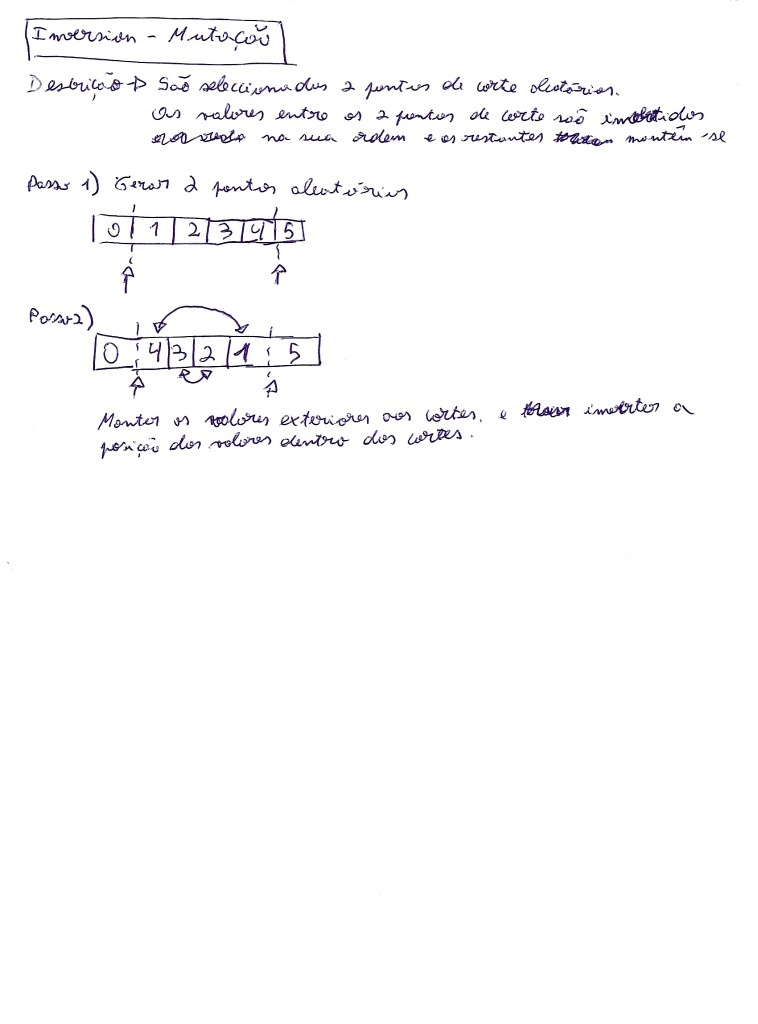 Inversion - Mutação
Descrição → São seleccionados 2 pontos de corte aleatórios.
Os valores entre os 2 pontos de corte são invertidos
na sua ordem e os restantes mantêm-se
Passo 1) Gerar 2 pontos aleatórios
0 1 2 3 4 5
Passo 2)
0 4 3 2 1 5
Manter os valores exteriores aos cortes. e inverter a
posição dos valores dentro dos cortes.